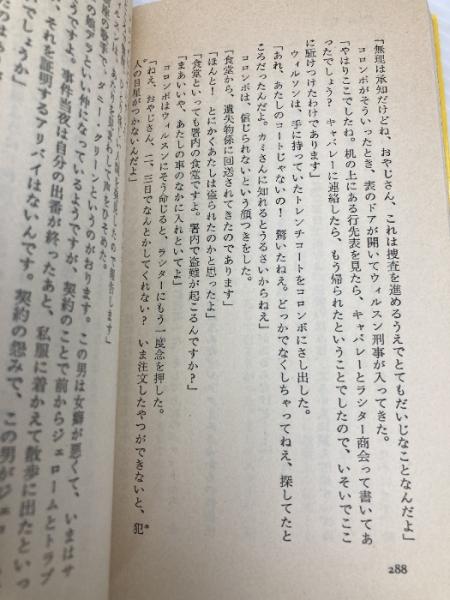 「無理は承知だけどね、おやじさん、これは捜査を進めるうえでとてもだいじなことなんだよ」
コロンボがそういったとき、表のドアが開いてウィルスン刑事が入ってきた。
「やはりここでしたね。机の上にあった行先表を見たら、キャバレーとラシター商会って書いてあ
ったでしょう? キャバレーに連絡したら、もう帰られたということでしたので、いそいでここ
に駈けつけたわけであります」
ウィルソンは、手に持っていたトレンチコートをコロンボにさし出した。
「あれ、あたしのコートじゃないの! 驚いたねえ。どっかでなくしちゃってねえ、探してたと
ころだったんだよ。カミさんに知れるとうるさいからねえ」
コロンボは、信じられないという顔つきをした。
「食堂から、遺失物係に回送されてきたのであります」
「ほんと! とにかくあたしは張られたのかと思ったよ」
「食堂といっても署内の食堂ですよ。署内で盗難が起こるんですか?」
「まあいいや、あたしの車のなかに入れといてよ」
コロンボはウィルスンにそう命じると、ラシターにもう一度念を押した。
「ねえ、おやじさん、二、三日でなんとかしてくれない? いま注文したやつができないと、犯
人の目星がつかないんだよ」
288
の歌手で、タニ・グリーンというのがおります。この男は女癖が悪くて、いまはサ
という仲になっているようですが、契約のことで前からジェロームとトラブ
うですよ。事件当夜は自分の出番が終ったあと、私服に着かえて散歩に出たといっ
それを証明するアリバイはないんです。契約の怨みで、この男がジェロ
でしょうか」